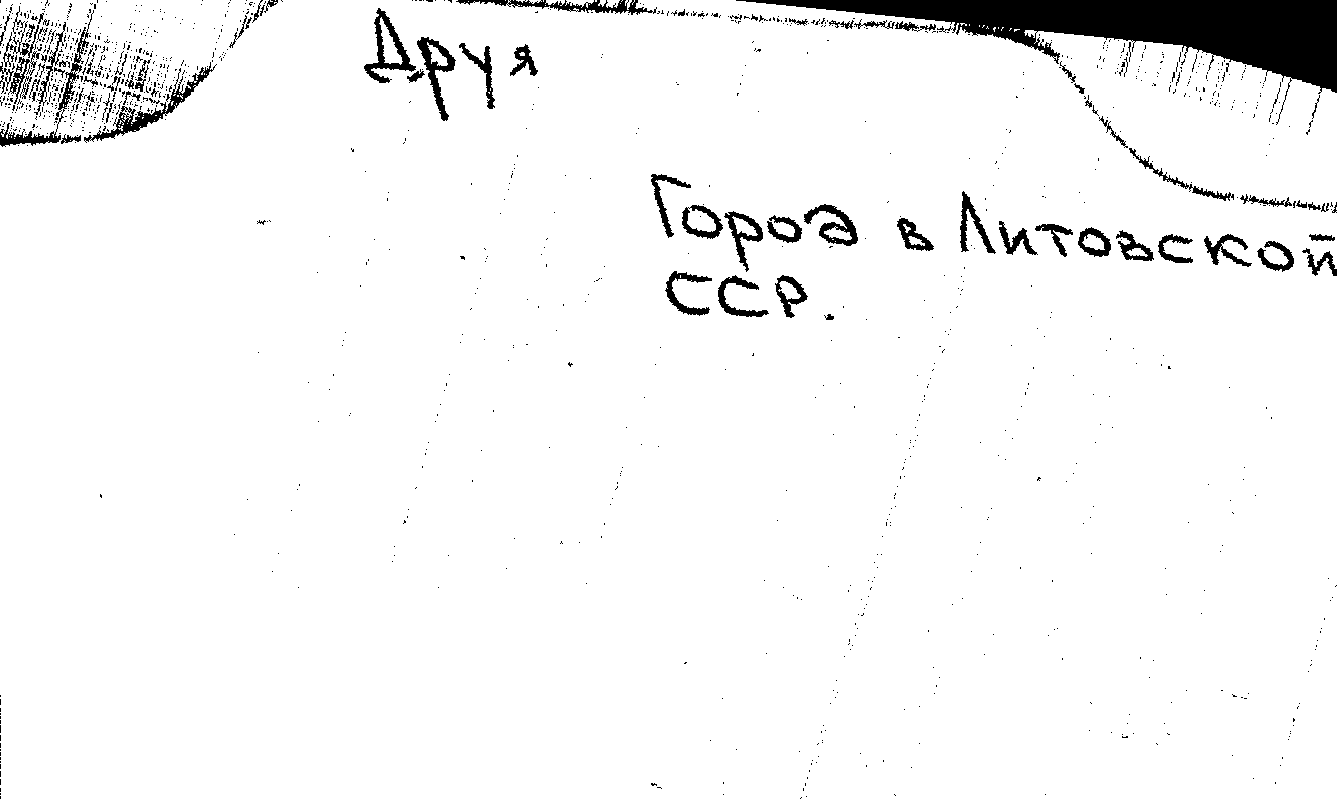 Друя
Город в Литовской
ССР.